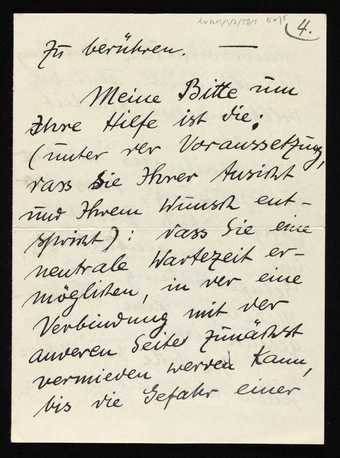 4.
zu berühren. —
Meine Bitte um
Ihre Hilfe ist die:
(unter der Voraussetzung,
dass sie Ihrer Ansicht
und Ihrem Wunsch ent-
spricht): dass Sie eine
neutrale Wartezeit er-
möglichen, in der eine
Verbindung mit der
anderen Seite zunächst
vermieden werden kann,
bis die Gefahr einer